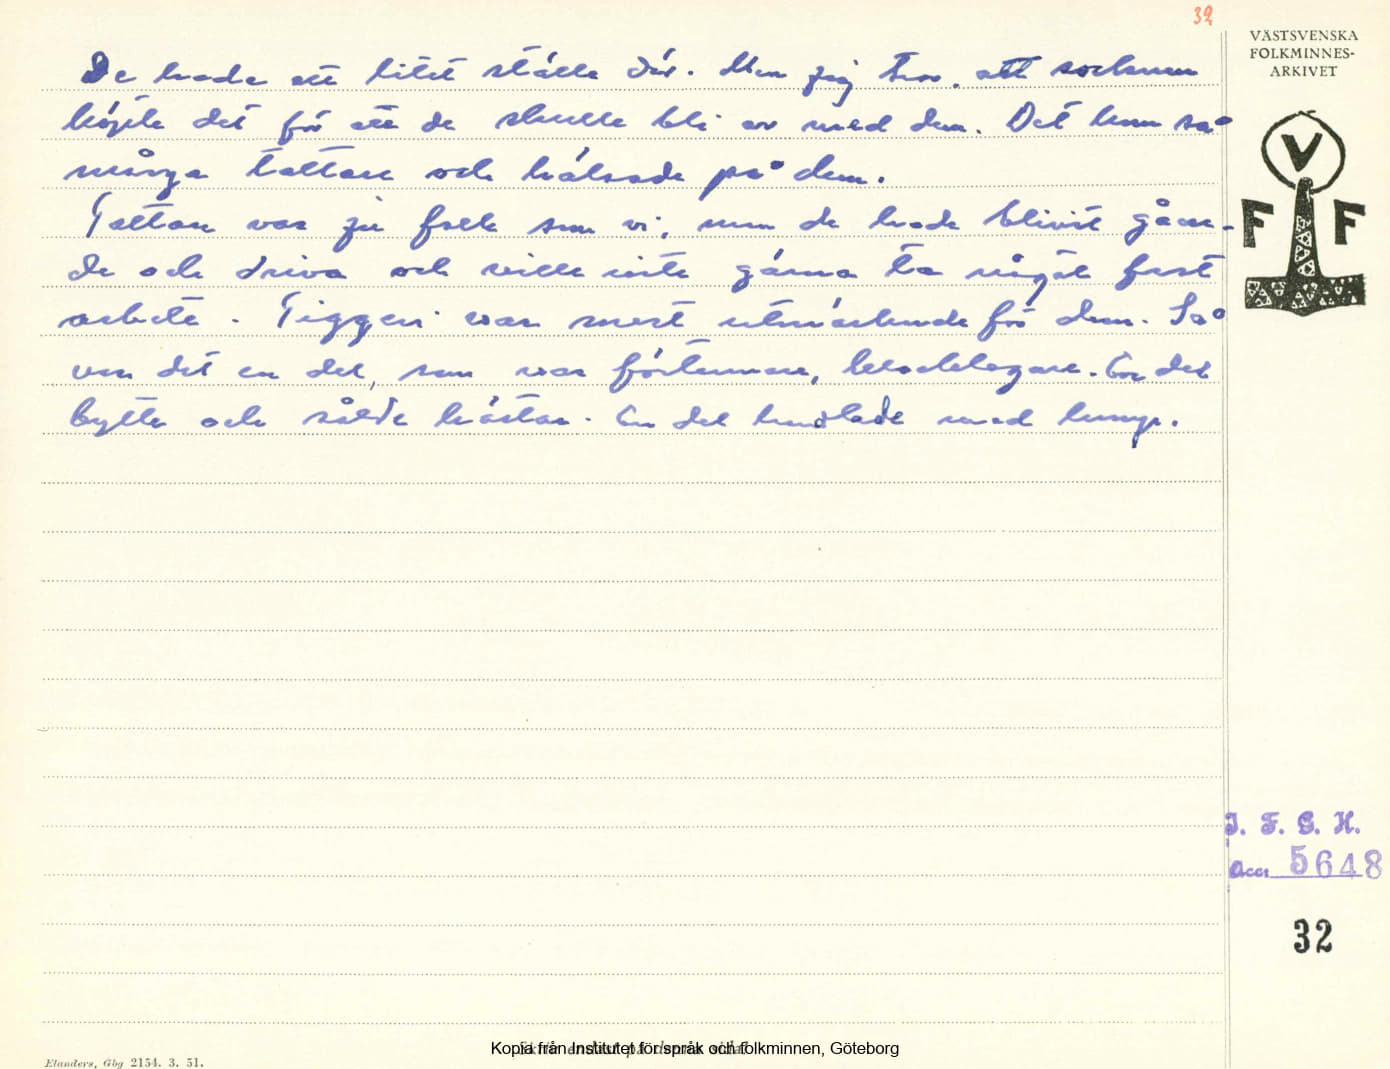 32
VÄSTSVENSKA
FOLKMINNES-
ARKIVET
V
F F
De hade ett litet ställe där. Men jag tror, att socknen
köpte det för att de skulle bli av med dem. Det kom så
många tattare och hälsade på dem.
Tattare var ju folk som vi, men de hade blivit gåen-
de och driva och ville inte gärna ta något fast
arbete. Tiggeri var mest utmärkande för dem. Så
var det en del, som var förtennare, klocklagare. En del
bytte och sålde hästar. En del handlade med lump.
I. F. G. H.
Acc: 5648
32
Kopia från Institutet för språk och folkminnen, Göteborg
Elanders, Gbg 2154. 3. 51.